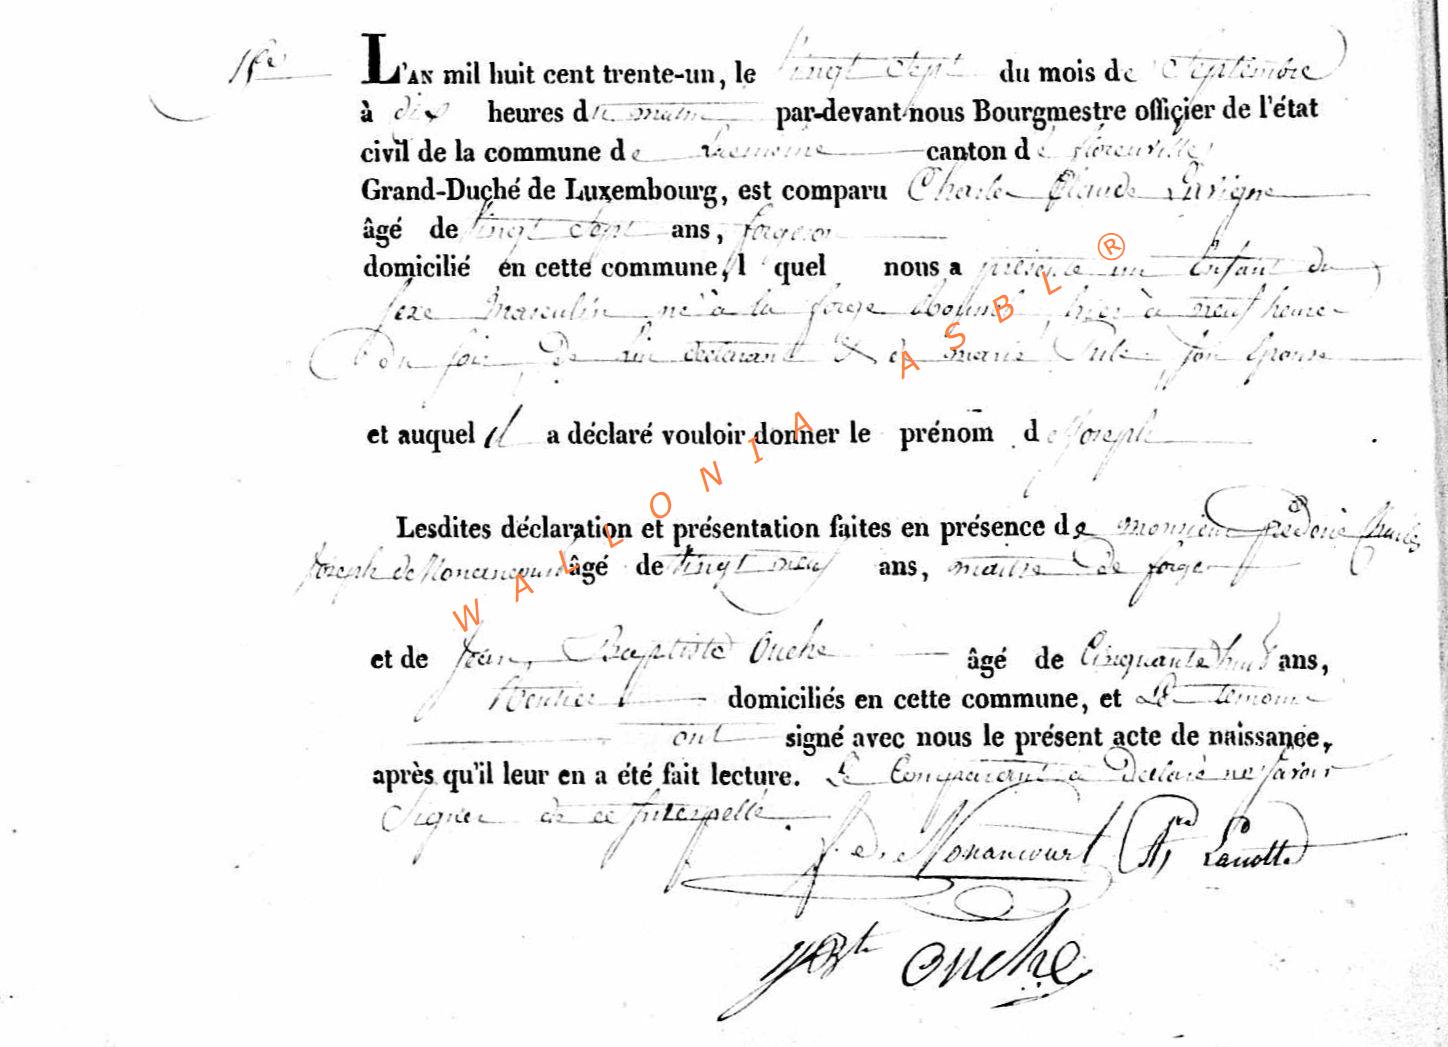 L'AN mil huit cent trente-un, le vingt sept du mois de Septembre
à dix heures du matin par-devant nous Bourgmestre officier de l'état
civil de la commune de canton de florenville
Grand-Duché de Luxembourg, est comparu Charles Claude Lavigne
âgé de vingt sept ans, forgeron
domicilié en cette commune, l quel nous a présenté un Enfant du
sexe Masculin né à la forge hier à neuf heures
du soir De lui déclarant & de marie son Epouse
et auquel il a déclaré vouloir donner le prénom de Joseph
Lesdites déclaration et présentation faites en présence de monsieur frederic Charles
Joseph de Nonancourt âgé de vingt neuf ans, maitre de forge
et de Jean Baptiste Ouche âgé de Cinquante huit ans,
Rentier domiciliés en cette commune, et Les temoins
ont signé avec nous le présent acte de naissance,
après qu'il leur en a été fait lecture. Le Comparant a Déclaré ne savoir
Signer de ce Interpellé.
f. de Nonancourt Lanotte
JBte Ouche
WALLONIA ASBL ®